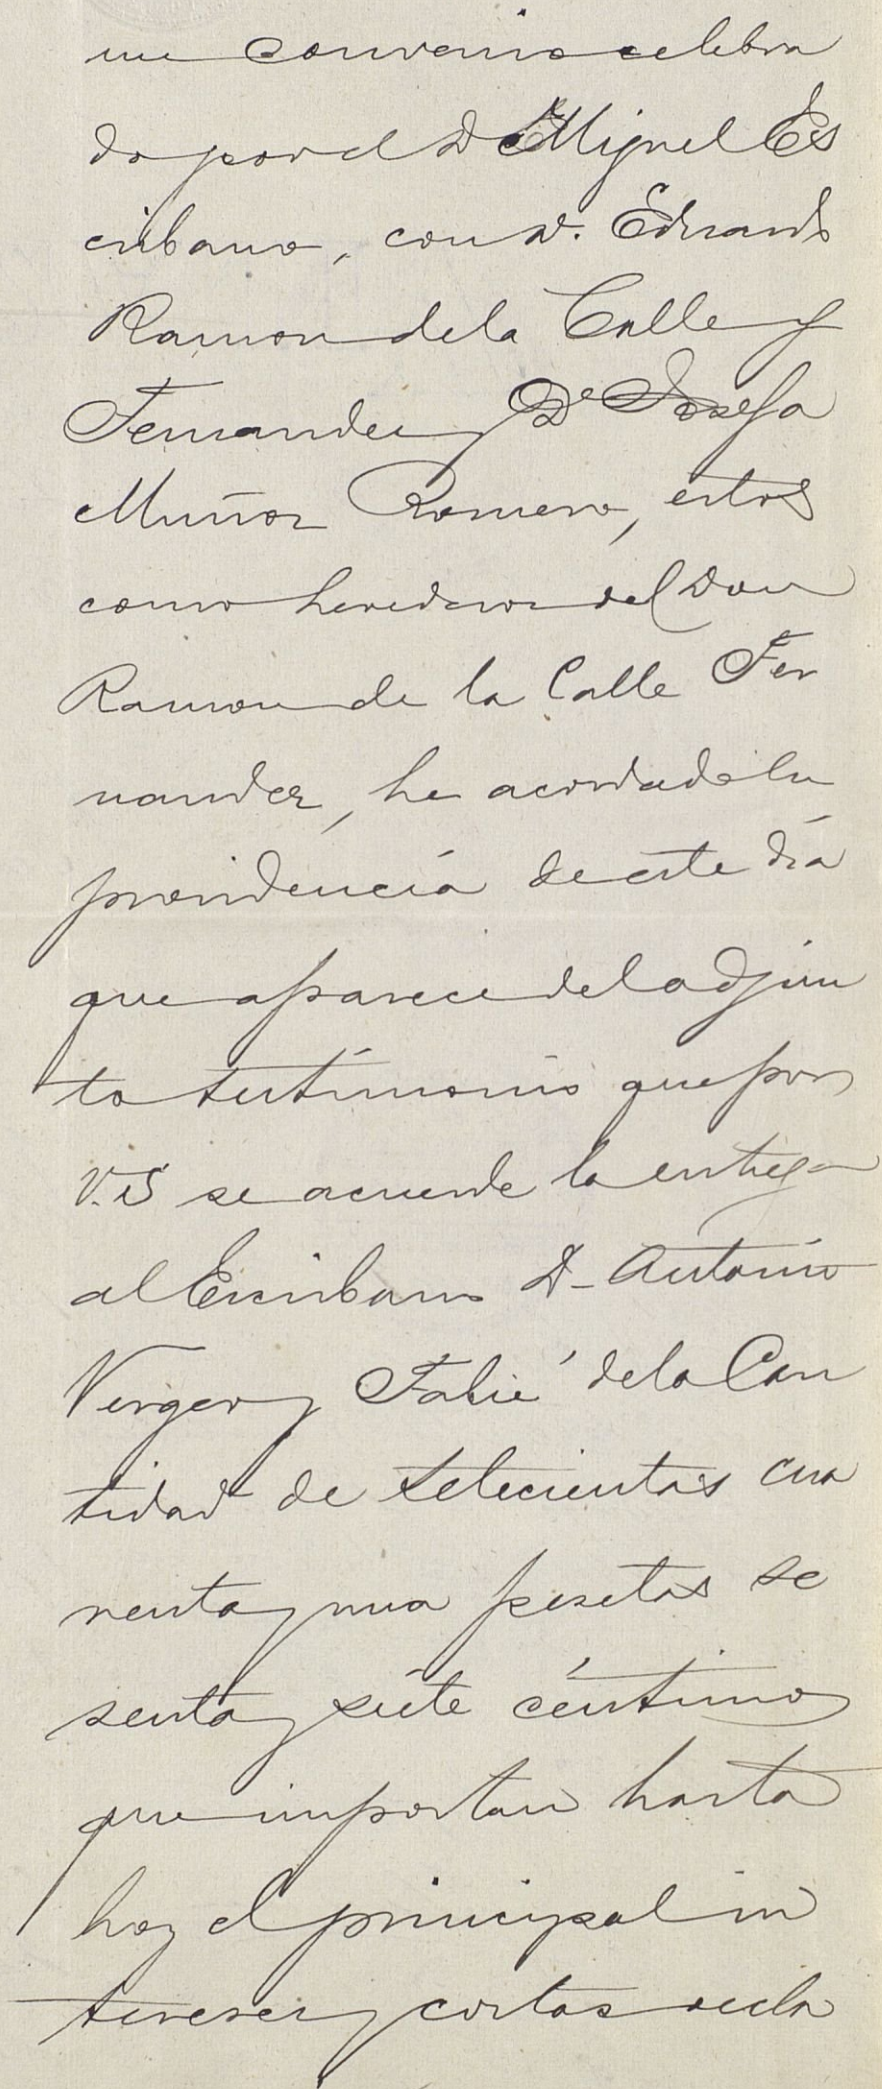 un convenio celebra
do por el D. Miguel Es
cribano, con D. Eduardo
Ramon de la Calle y
Fernandez y Dª Josefa
Muñoz Romero, estos
como herederos del Don
Ramon de la Calle Fer
nandez, he acordado en
providencia de este día
que aparece del adjun
to testimonio que por
V.S se acuerde la entrega
al Escribano D. Antonio
Verger y Fabié de la Can
tidad de setecientas cua
renta y una pesetas se
senta y siete céntimos
que importan hasta
hoy el principal in
tereses y costas recla